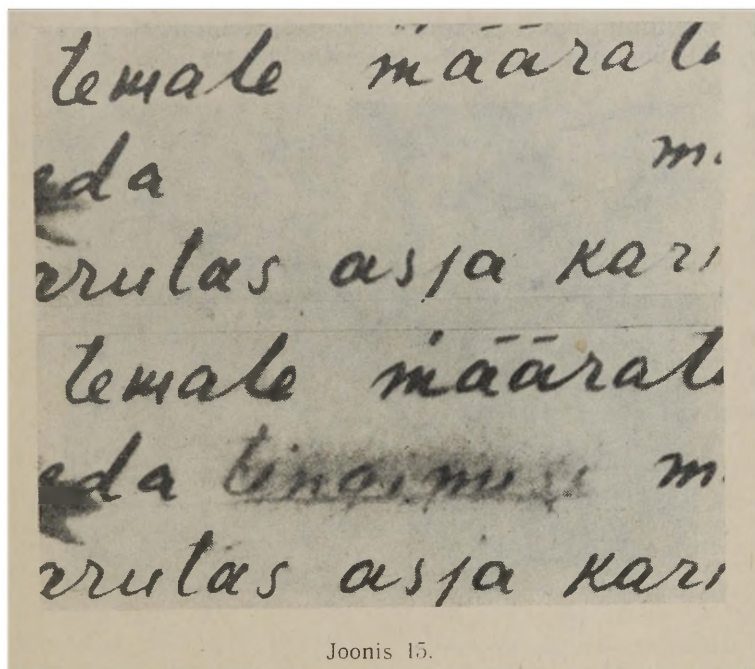 temale määrat
eda m
arutas asja kari
temale määrat
eda tingimusi m
arutas asja kari
Joonis 15.